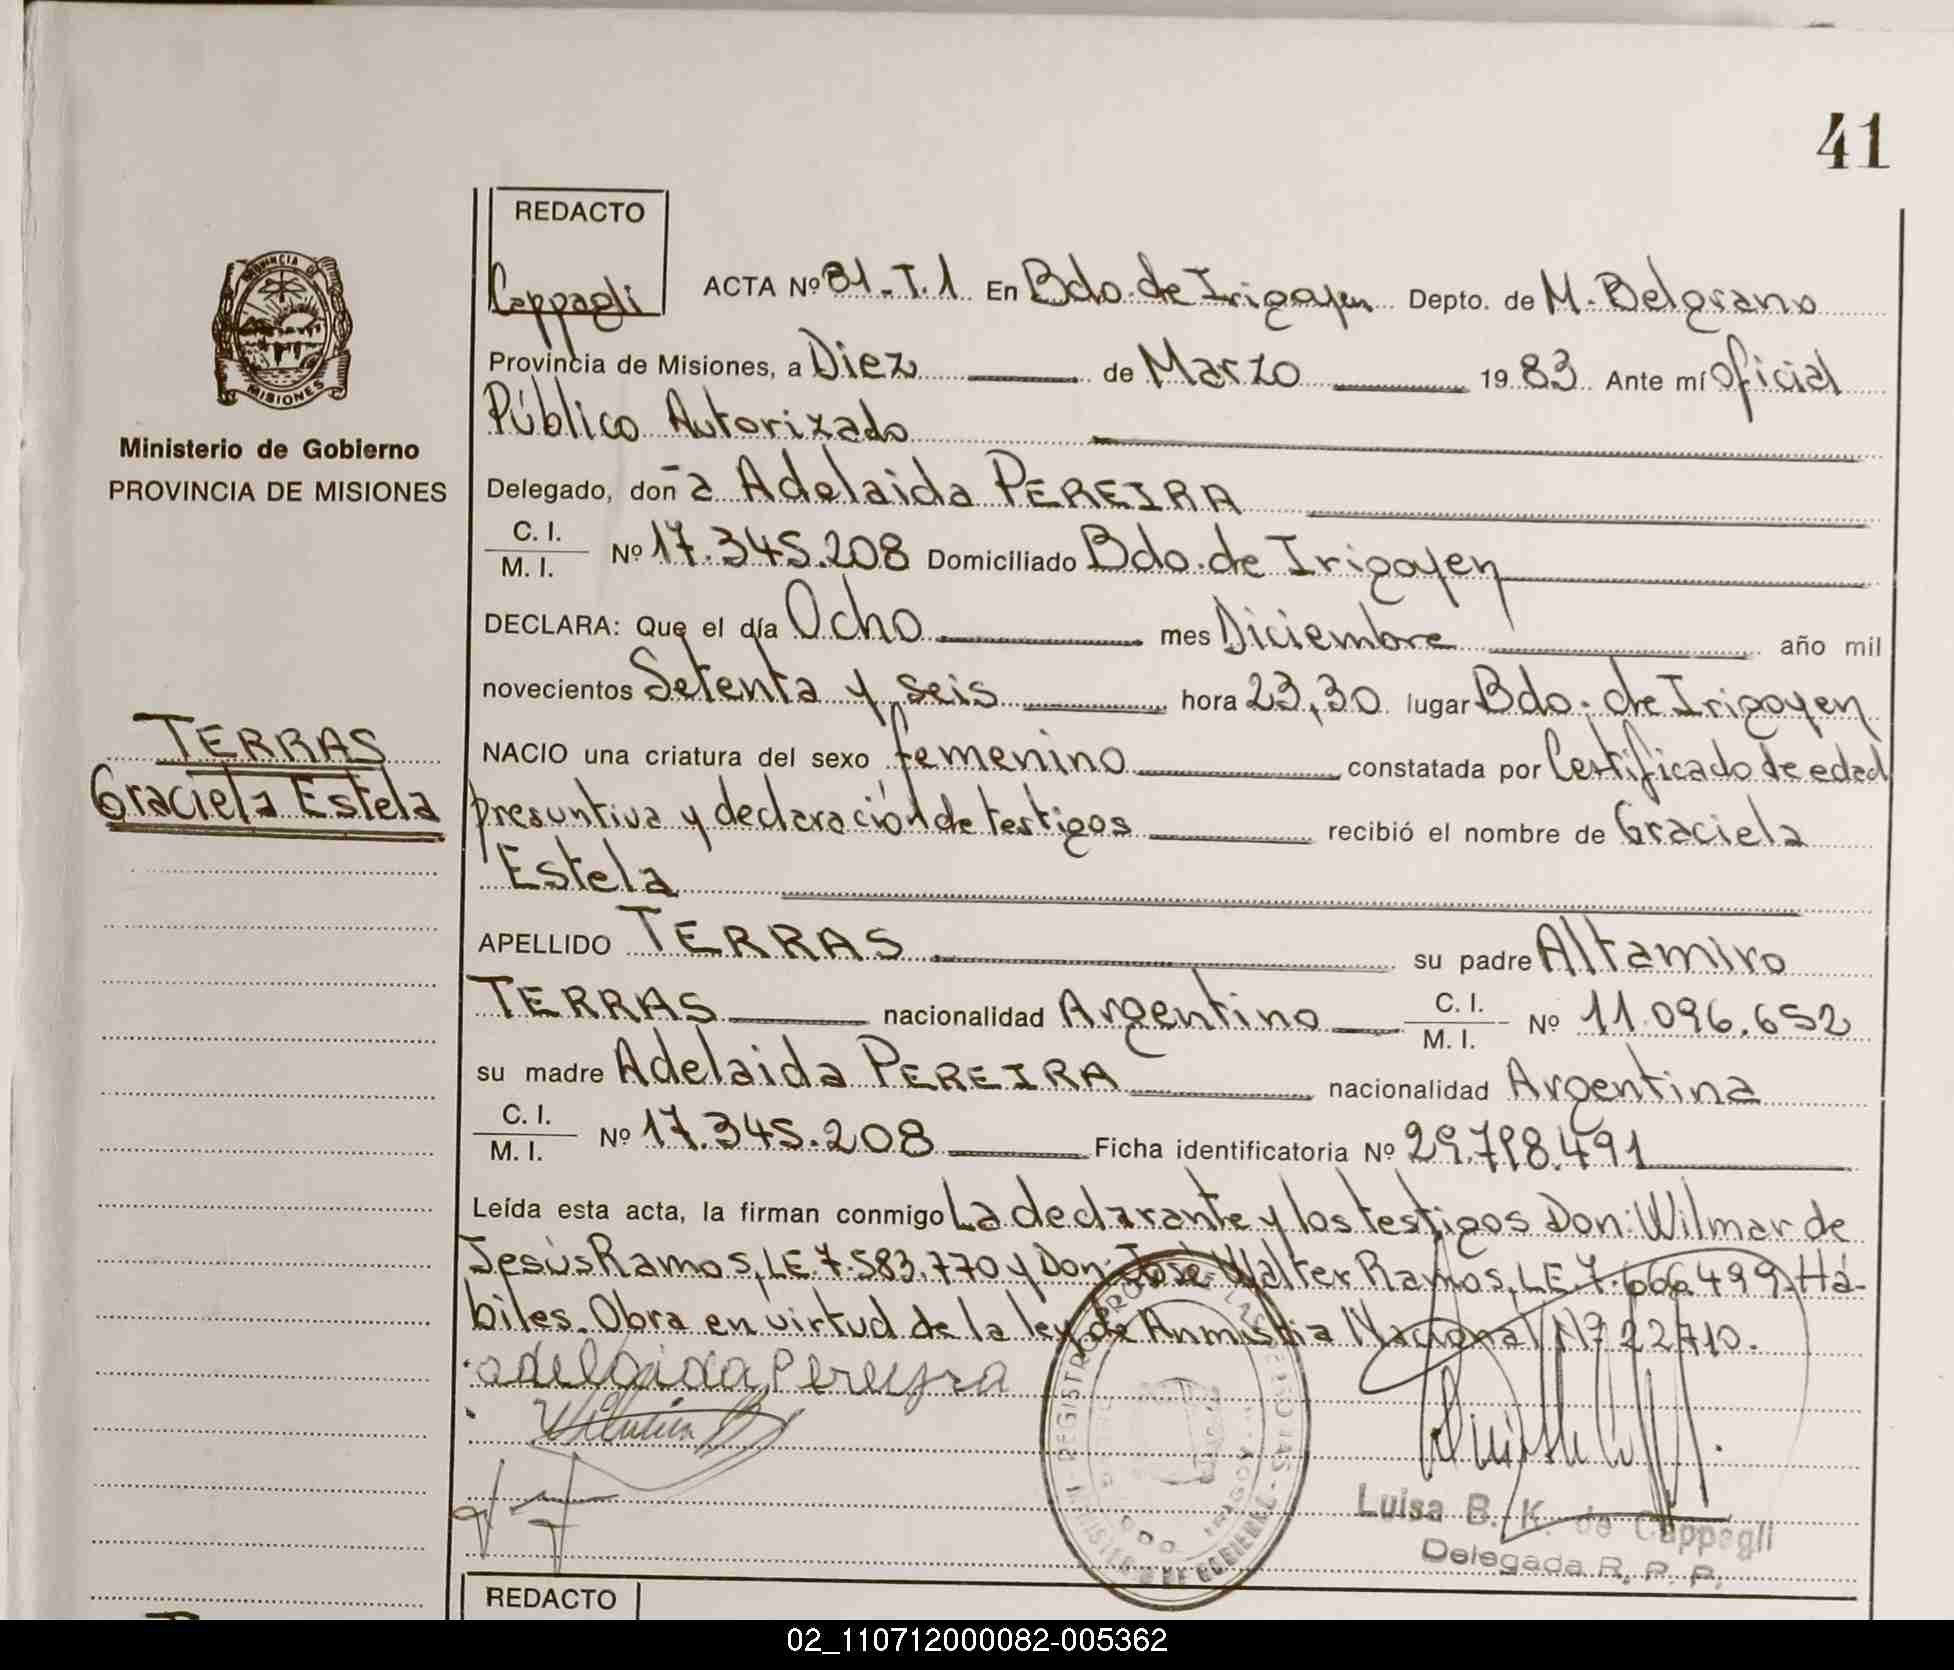 41
REDACTO
Cappagli
ACTA Nº 81-T.1 En Bdo. de Irigoyen Depto. de M. Belgrano
PROVINCIA DE
MISIONES
Provincia de Misiones, a Diez de Marzo 1983 Ante mí Oficial
Público Autorizado
Ministerio de Gobierno
PROVINCIA DE MISIONES
Delegado, doña Adelaida PEREIRA
C. I.
M. I. Nº 17.345.208 Domiciliado Bdo. de Irigoyen
DECLARA: Que el día Ocho mes Diciembre año mil
novecientos Setenta y seis hora 23,30 lugar Bdo. de Irigoyen
TERRAS
Graciela Estela
NACIO una criatura del sexo femenino constatada por Certificado de edad
presuntiva y declaración de testigos recibió el nombre de Graciela
Estela
APELLIDO TERRAS su padre Altamiro
TERRAS nacionalidad Argentino C. I. M. I. Nº 11.096.652
su madre Adelaida PEREIRA nacionalidad Argentina
C. I.
M. I. Nº 17.345.208 Ficha identificatoria Nº 29.798.491
Leída esta acta, la firman conmigo La declarante y los testigos Don: Wilmar de
Jesús Ramos, LE. 7.583.770 y Don: José Walter Ramos, LE. 7.666.499. Há-
biles. Obra en virtud de la ley de Anmistia Nacional Nº 22710.
adelaida Pereyra
Luisa B. K. de Cappagli
Delegada R. P. P.
REDACTO
02_110712000082-005362